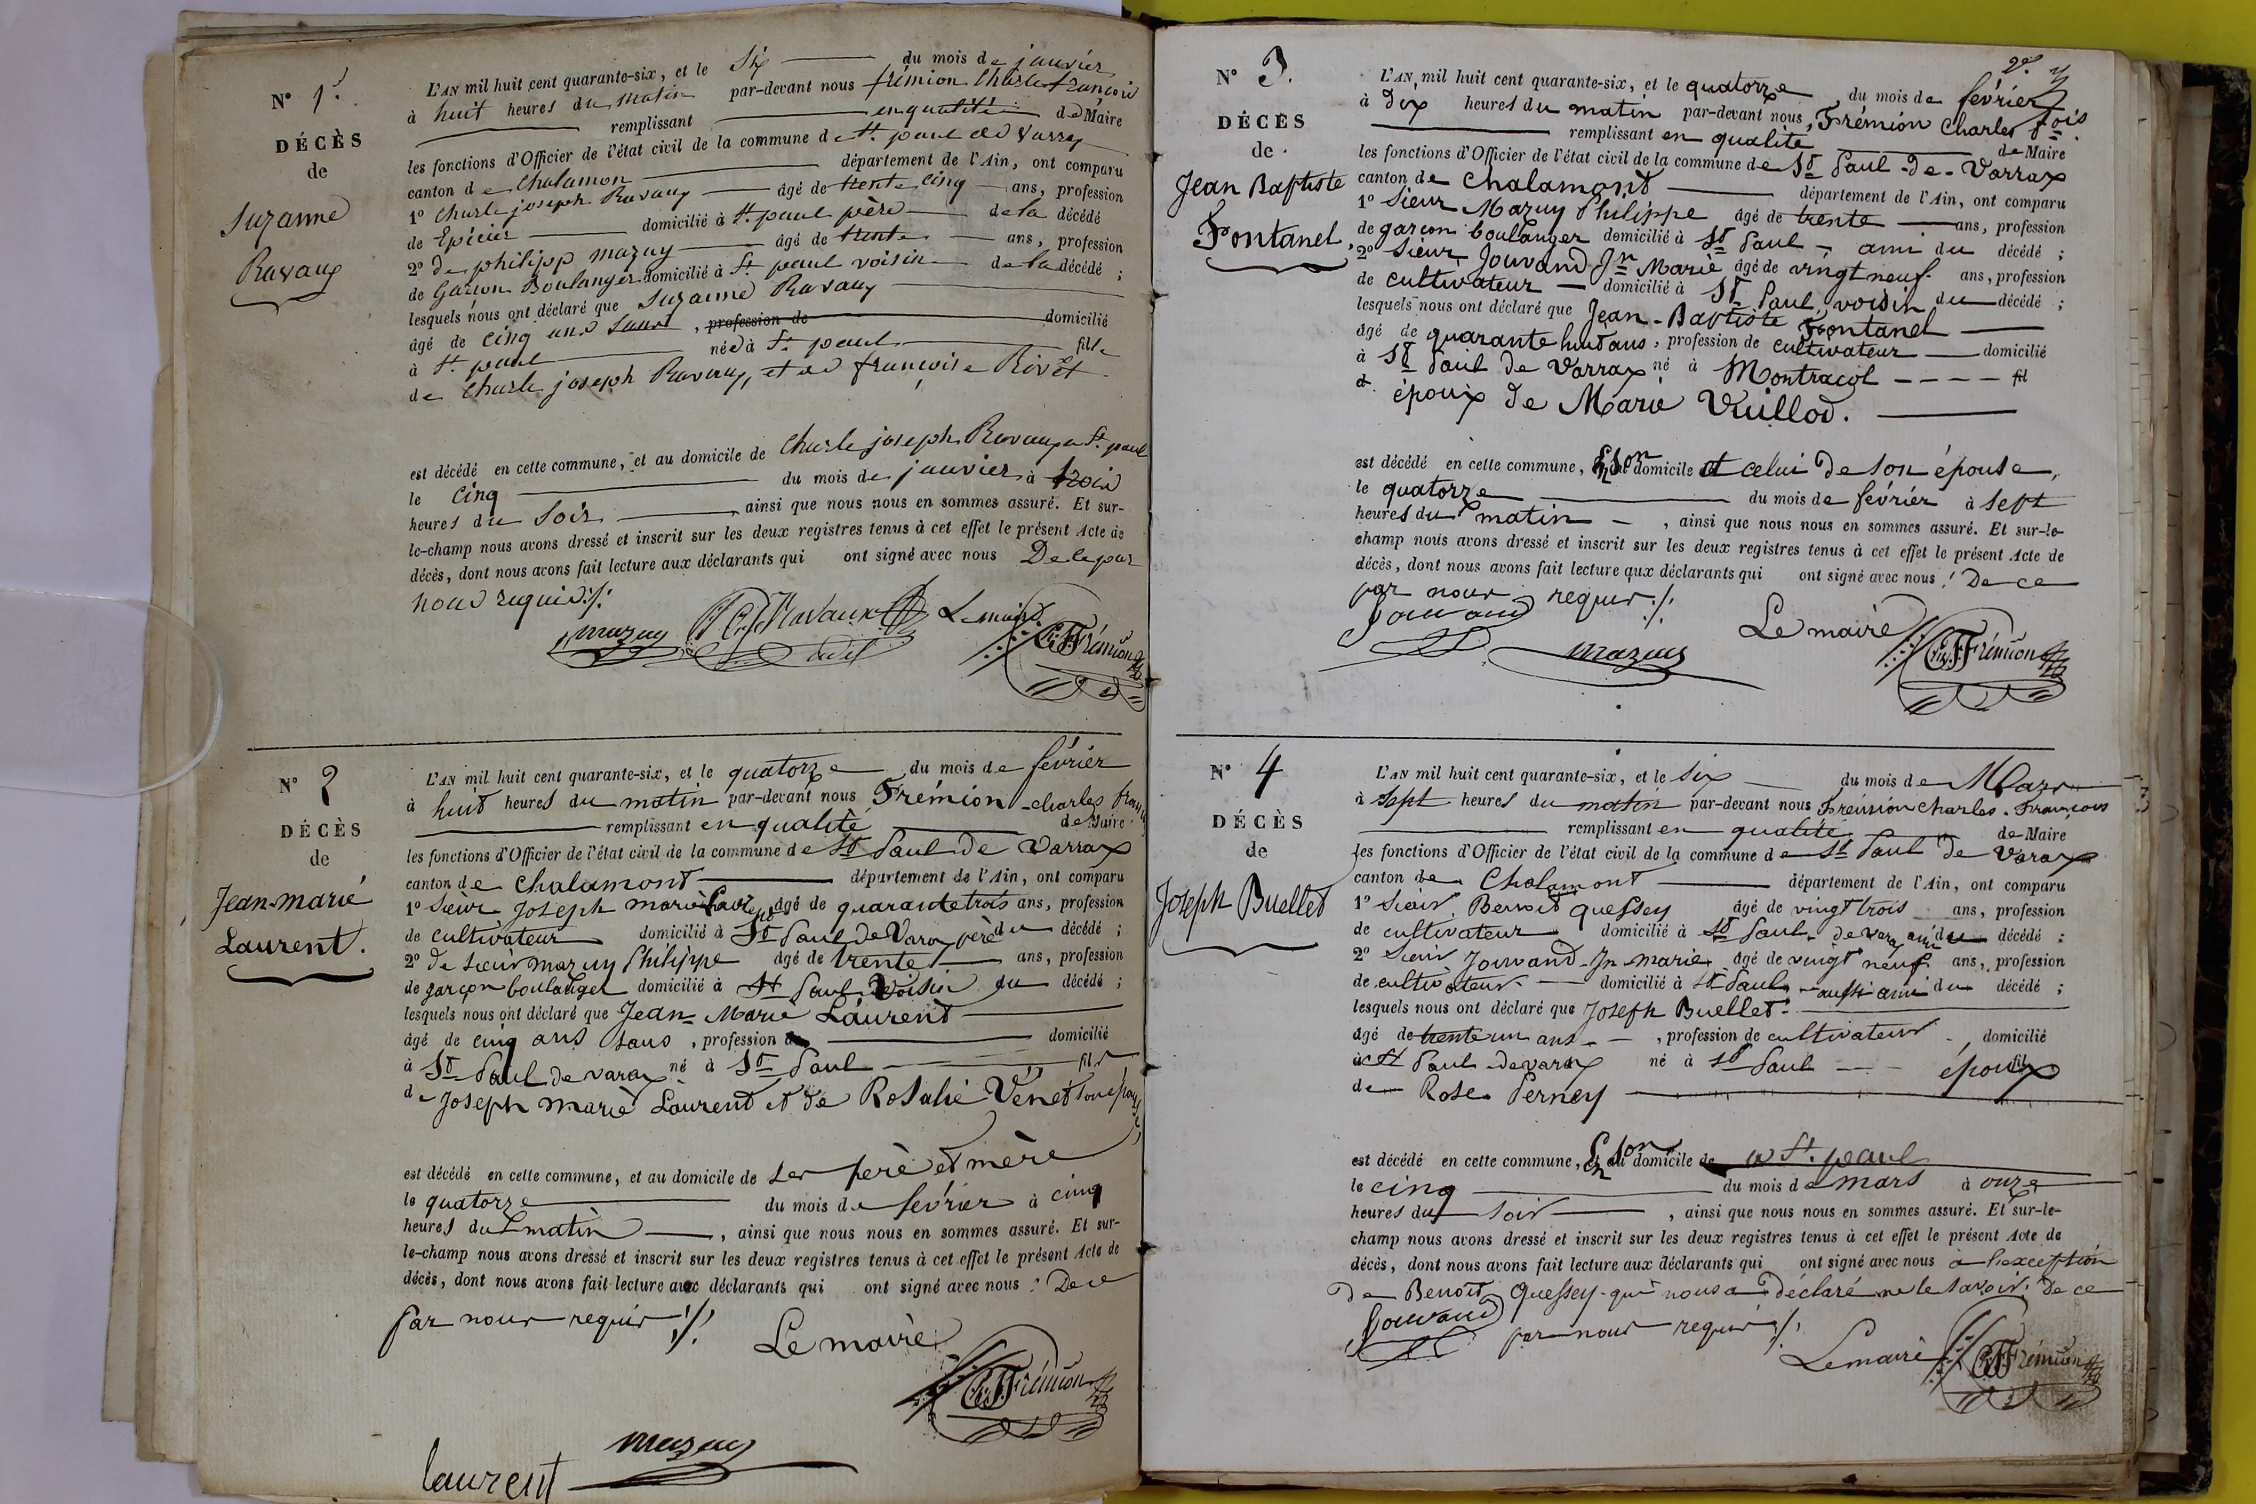 N° 1.
DÉCÈS
de
Suzanne
Ravaux
L'AN mil huit cent quarante-six, et le Six du mois de janvier
à huit heures du matin par-devant nous frémion Charle françois
remplissant en qualité de Maire
les fonctions d'Officier de l'état civil de la commune de St. paul de Varax
canton de Chalamon département de l'Ain, ont comparu
1° Charle joseph Ravaux âgé de trente cinq ans, profession
de Epicier domicilié à St. paul père de la décédé
2° de philipp mazuy âgé de trente ans, profession
de Garson Boulanger domicilié à St. paul voisin de la décédé ;
lesquels nous ont déclaré que Suzanne Ravaux
âgé de cinq ans sans , profession de domicilié
à St. paul née à St. paul fille
de Charle joseph Ravaux, et de françoise Rivet
est décédé en cette commune, et au domicile de Charle joseph Ravaux a St. paul
le cinq du mois de janvier à trois
heures du soir ainsi que nous nous en sommes assuré. Et sur-
le-champ nous avons dressé et inscrit sur les deux registres tenus à cet effet le présent Acte de
décès, dont nous avons fait lecture aux déclarants qui ont signé avec nous De ce par
nous requis ./.
mazuy Ravaux Le maire
Ch. F. Frémion
N° 2
DÉCÈS
de
Jean-marie
Laurent.
L'AN mil huit cent quarante-six, et le quatorze du mois de février
à huit heures du matin par-devant nous Frémion charles
remplissant en qualité de Maire
les fonctions d'Officier de l'état civil de la commune de St Paul de Varrax
canton de Chalamont département de l'Ain, ont comparu
1° Sieur Joseph marie âgé de quarante trois ans, profession
de cultivateur domicilié à St Paul de Varax père du décédé ;
2° de Sieur mazuy Philippe âgé de trente ans, profession
de garçon boulanger domicilié à St Paul, Voisin du décédé ;
lesquels nous ont déclaré que Jean-Marie Laurent
âgé de cinq ans sans , profession domicilié
à St Paul de varax né à St Paul fils
de Joseph marie Laurent et de Rosalie Vénet son épouse
est décédé en cette commune, et au domicile de ses père et mère
le quatorze du mois de février à cinq
heures du matin , ainsi que nous nous en sommes assuré. Et sur-
le-champ nous avons dressé et inscrit sur les deux registres tenus à cet effet le présent Acte de
décès, dont nous avons fait lecture aux déclarants qui ont signé avec nous : De ce
par nous requis ./.
Le maire
Ch. F. Frémion
mazuy
laurent
2e
N° 3.
DÉCÈS
de
Jean Baptiste
Fontanel,
L'AN mil huit cent quarante-six, et le quatorze du mois de février
à dix heures du matin par-devant nous, Frémion Charles fois
remplissant en qualité de Maire
les fonctions d'Officier de l'état civil de la commune de St Paul-de-Varrax
canton de Chalamont département de l'Ain, ont comparu
1° Sieur Mazuy Philippe âgé de trente ans, profession
de garçon boulanger domicilié à St Paul – ami du décédé ;
2° Sieur Jouvand Jn Marie âgé de vingt neuf ans, profession
de cultivateur domicilié à St Paul, voisin du décédé ;
lesquels nous ont déclaré que Jean-Baptiste Fontanel
âgé de quarante huit ans, profession de cultivateur domicilié
à St Paul de Varrax né à Montracol fil
d. époux de Marie Vuillod.
est décédé en cette commune, En son domicile et celui de son épouse,
le quatorze du mois de février à sept
heures du matin – , ainsi que nous nous en sommes assuré. Et sur-le-
champ nous avons dressé et inscrit sur les deux registres tenus à cet effet le présent Acte de
décès, dont nous avons fait lecture aux déclarants qui ont signé avec nous : De ce
par nous requis ./.
Jouvand
Le maire
mazuy
Ch. F. Frémion
N° 4
DÉCÈS
de
Joseph Buellet
L'AN mil huit cent quarante-six, et le six du mois de Mars
à sept heures du matin par-devant nous Frémion Charles-François
remplissant en qualité de Maire
les fonctions d'Officier de l'état civil de la commune de St Paul de Varax
canton de Chalamont département de l'Ain, ont comparu
1° Sieur Benoit Quessey âgé de vingt trois ans, profession
de cultivateur domicilié à St Paul-de varax ami du décédé ;
2° Sieur Jouvand-Jn-marie âgé de vingt neuf ans, profession
de cultivateur domicilié à St Paul, – aussi ami du décédé ;
lesquels nous ont déclaré que Joseph Buellet
âgé de trente un ans – , profession de cultivateur , domicilié
à St Paul-de varax né à St Paul époux
de Rose Perney
est décédé en cette commune, En son domicile de a St. paul
le cinq du mois de mars à onze
heures du soir , ainsi que nous nous en sommes assuré. Et sur-le-
champ nous avons dressé et inscrit sur les deux registres tenus à cet effet le présent Acte de
décès, dont nous avons fait lecture aux déclarants qui ont signé avec nous à l'exception
de Benoit Quessey qui nous a déclaré ne le savoir : De ce
Jouvand par nous requis ./.
Le maire
Ch. F. Frémion